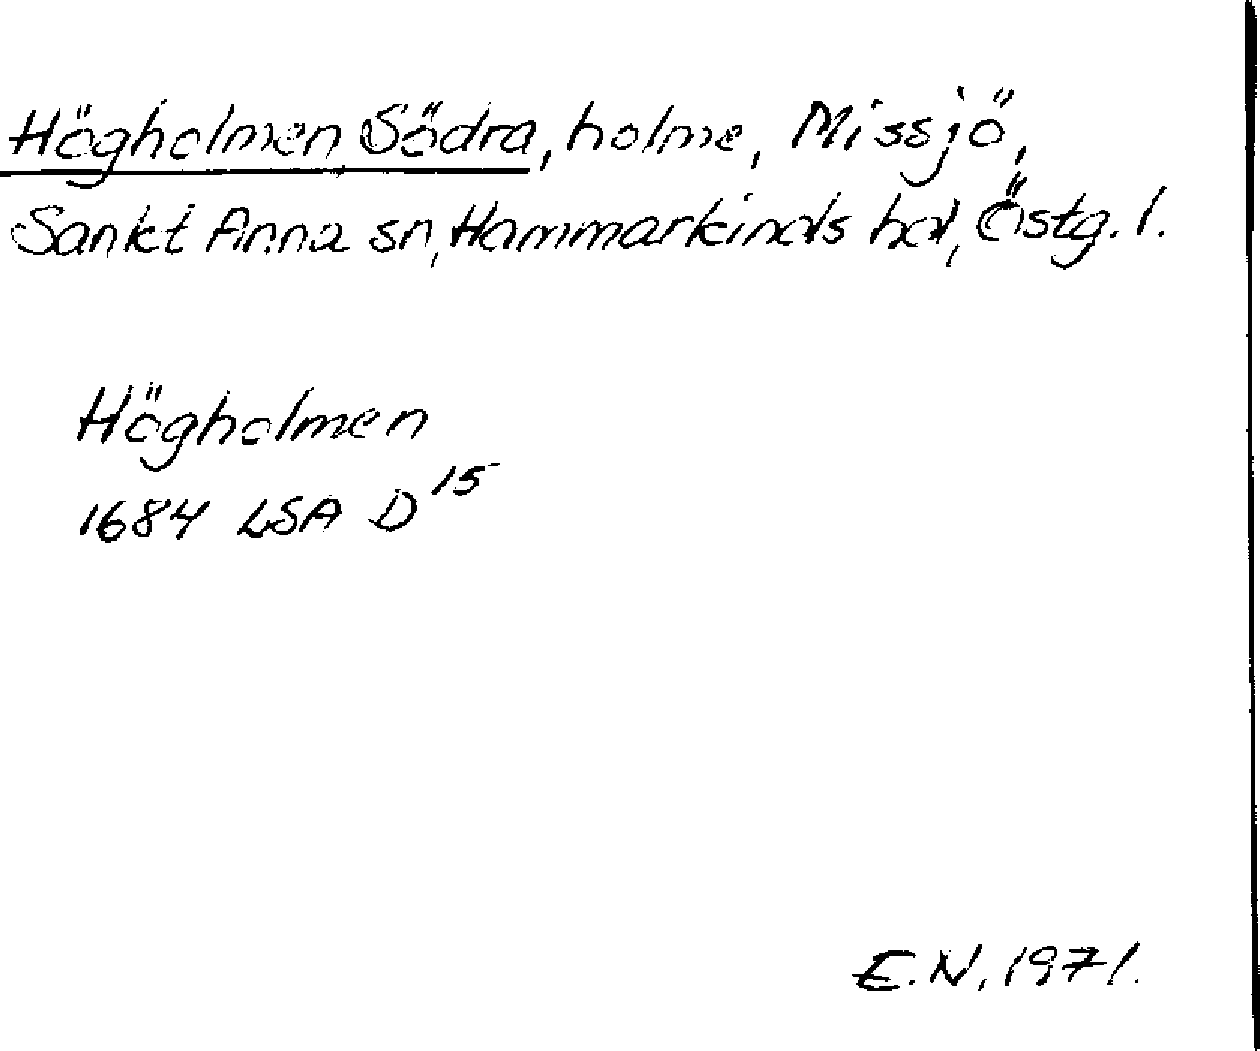 Högholmen, Södra, holme, Missjö,
Sankt Anna sn, Hammarkinds hd, Östg. l.
Högholmen
1684 LSA D 15
E.N. 1971.